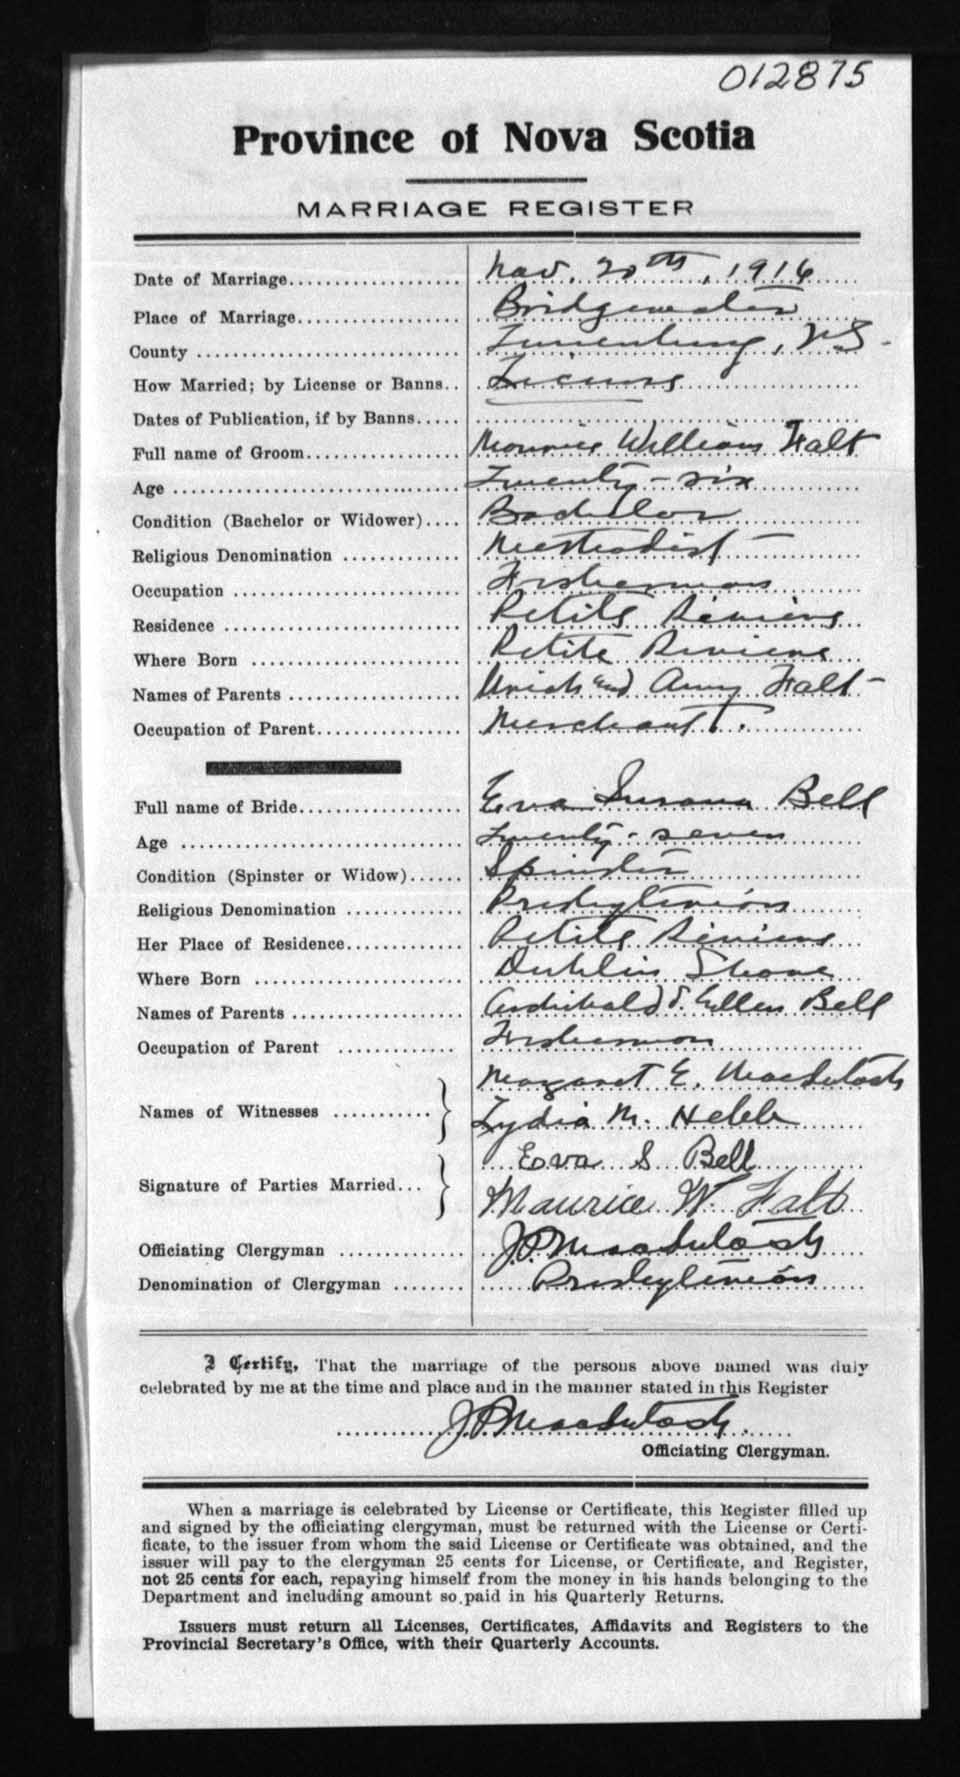 012875
Province of Nova Scotia
MARRIAGE REGISTER
Date of Marriage................... Nov. 20th, 1916
Place of Marriage.................. Bridgewater
County ............................. Lunenburg, NS.
How Married; by License or Banns.. License
Dates of Publication, if by Banns.....
Full name of Groom................. Maurice William Falt
Age ................................ Twenty-six
Condition (Bachelor or Widower).... Bachelor
Religious Denomination ............. Methodist
Occupation ......................... Fisherman
Residence .......................... Petite Riviere
Where Born ......................... Petite Riviere
Names of Parents ................... Uriah and Amy Falt
Occupation of Parent................ Merchant.
Full name of Bride.................. Eva Susana Bell
Age ................................ Twenty-seven
Condition (Spinster or Widow)...... Spinster
Religious Denomination ............. Presbyterian
Her Place of Residence............. Petite Riviere
Where Born ......................... Dublin Shore
Names of Parents ................... Archibald & Ellen Bell
Occupation of Parent ............. Fisherman
Margaret E. MacIntosh
Names of Witnesses ........... } Lydia M. Hebb
Eva S Bell
Signature of Parties Married... } Maurice W. Falt
Officiating Clergyman .............. J.P. MacIntosh
Denomination of Clergyman ........ Presbyterian
I Certify, That the marriage of the persons above named was duly
celebrated by me at the time and place and in the manner stated in this Register
J P MacIntosh.
Officiating Clergyman.
When a marriage is celebrated by License or Certificate, this Register filled up
and signed by the officiating clergyman, must be returned with the License or Certi-
ficate, to the issuer from whom the said License or Certificate was obtained, and the
issuer will pay to the clergyman 25 cents for License, or Certificate, and Register,
not 25 cents for each, repaying himself from the money in his hands belonging to the
Department and including amount so paid in his Quarterly Returns.
Issuers must return all Licenses, Certificates, Affidavits and Registers to the
Provincial Secretary's Office, with their Quarterly Accounts.